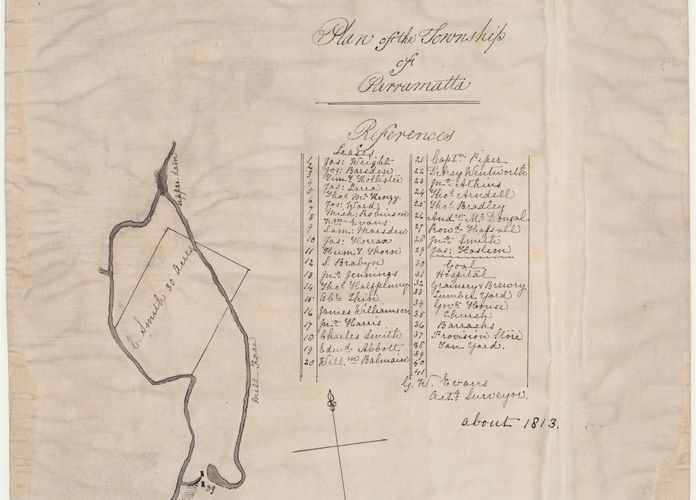 Plan of the Township
of
Parramatta
References
Leases
1 Jas: Wright
2 Jos: Barsden
3
4 Jas: Larra
5 Thos Mc Henry
6 Jos: Ward
7 Mich: Robinson
8 Wm Evans
9 Sam: Marsden
10 Jas: Horrax
11 Humy Thorn
12 S. Brabyn
13 Jno Jennings
14 Thos Halfpenny
15 Obh Ikin
16 James Williamson
17 Jno Harris
18 Charles Smith
19 Edwd Abbott
20 Willm Balmain
21 Captn Piper
22 D'Arcy Wentworth
23 Jno Atkins
24 Thos Arndell
25 Thos Bradley
26 Andw Mc Dougal
27 Rowd Hassall
28 Jno Smith
29 Jas: Haslem
30 Goal
31 Hospital
32 Granery & Brewry
33 Lumber Yard
34 Govt House
35 Church
36 Barracks
37 Provision Store
38 Tan Yard.
39
40
41
G. W. Evans
Actg Surveyor.
about 1813.
upper dam
C. Smith 30 Acres
Mill Race
39